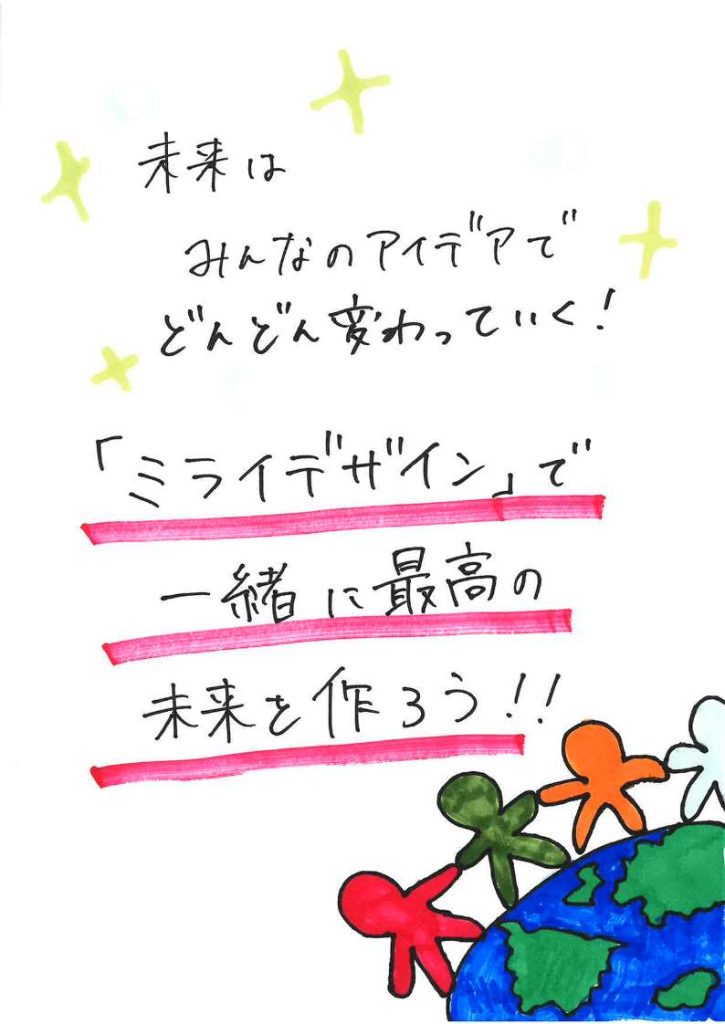 未来は
みんなのアイデアで
どんどん変わっていく!
「ミライデザイン」で
一緒に最高の
未来を作ろう!!